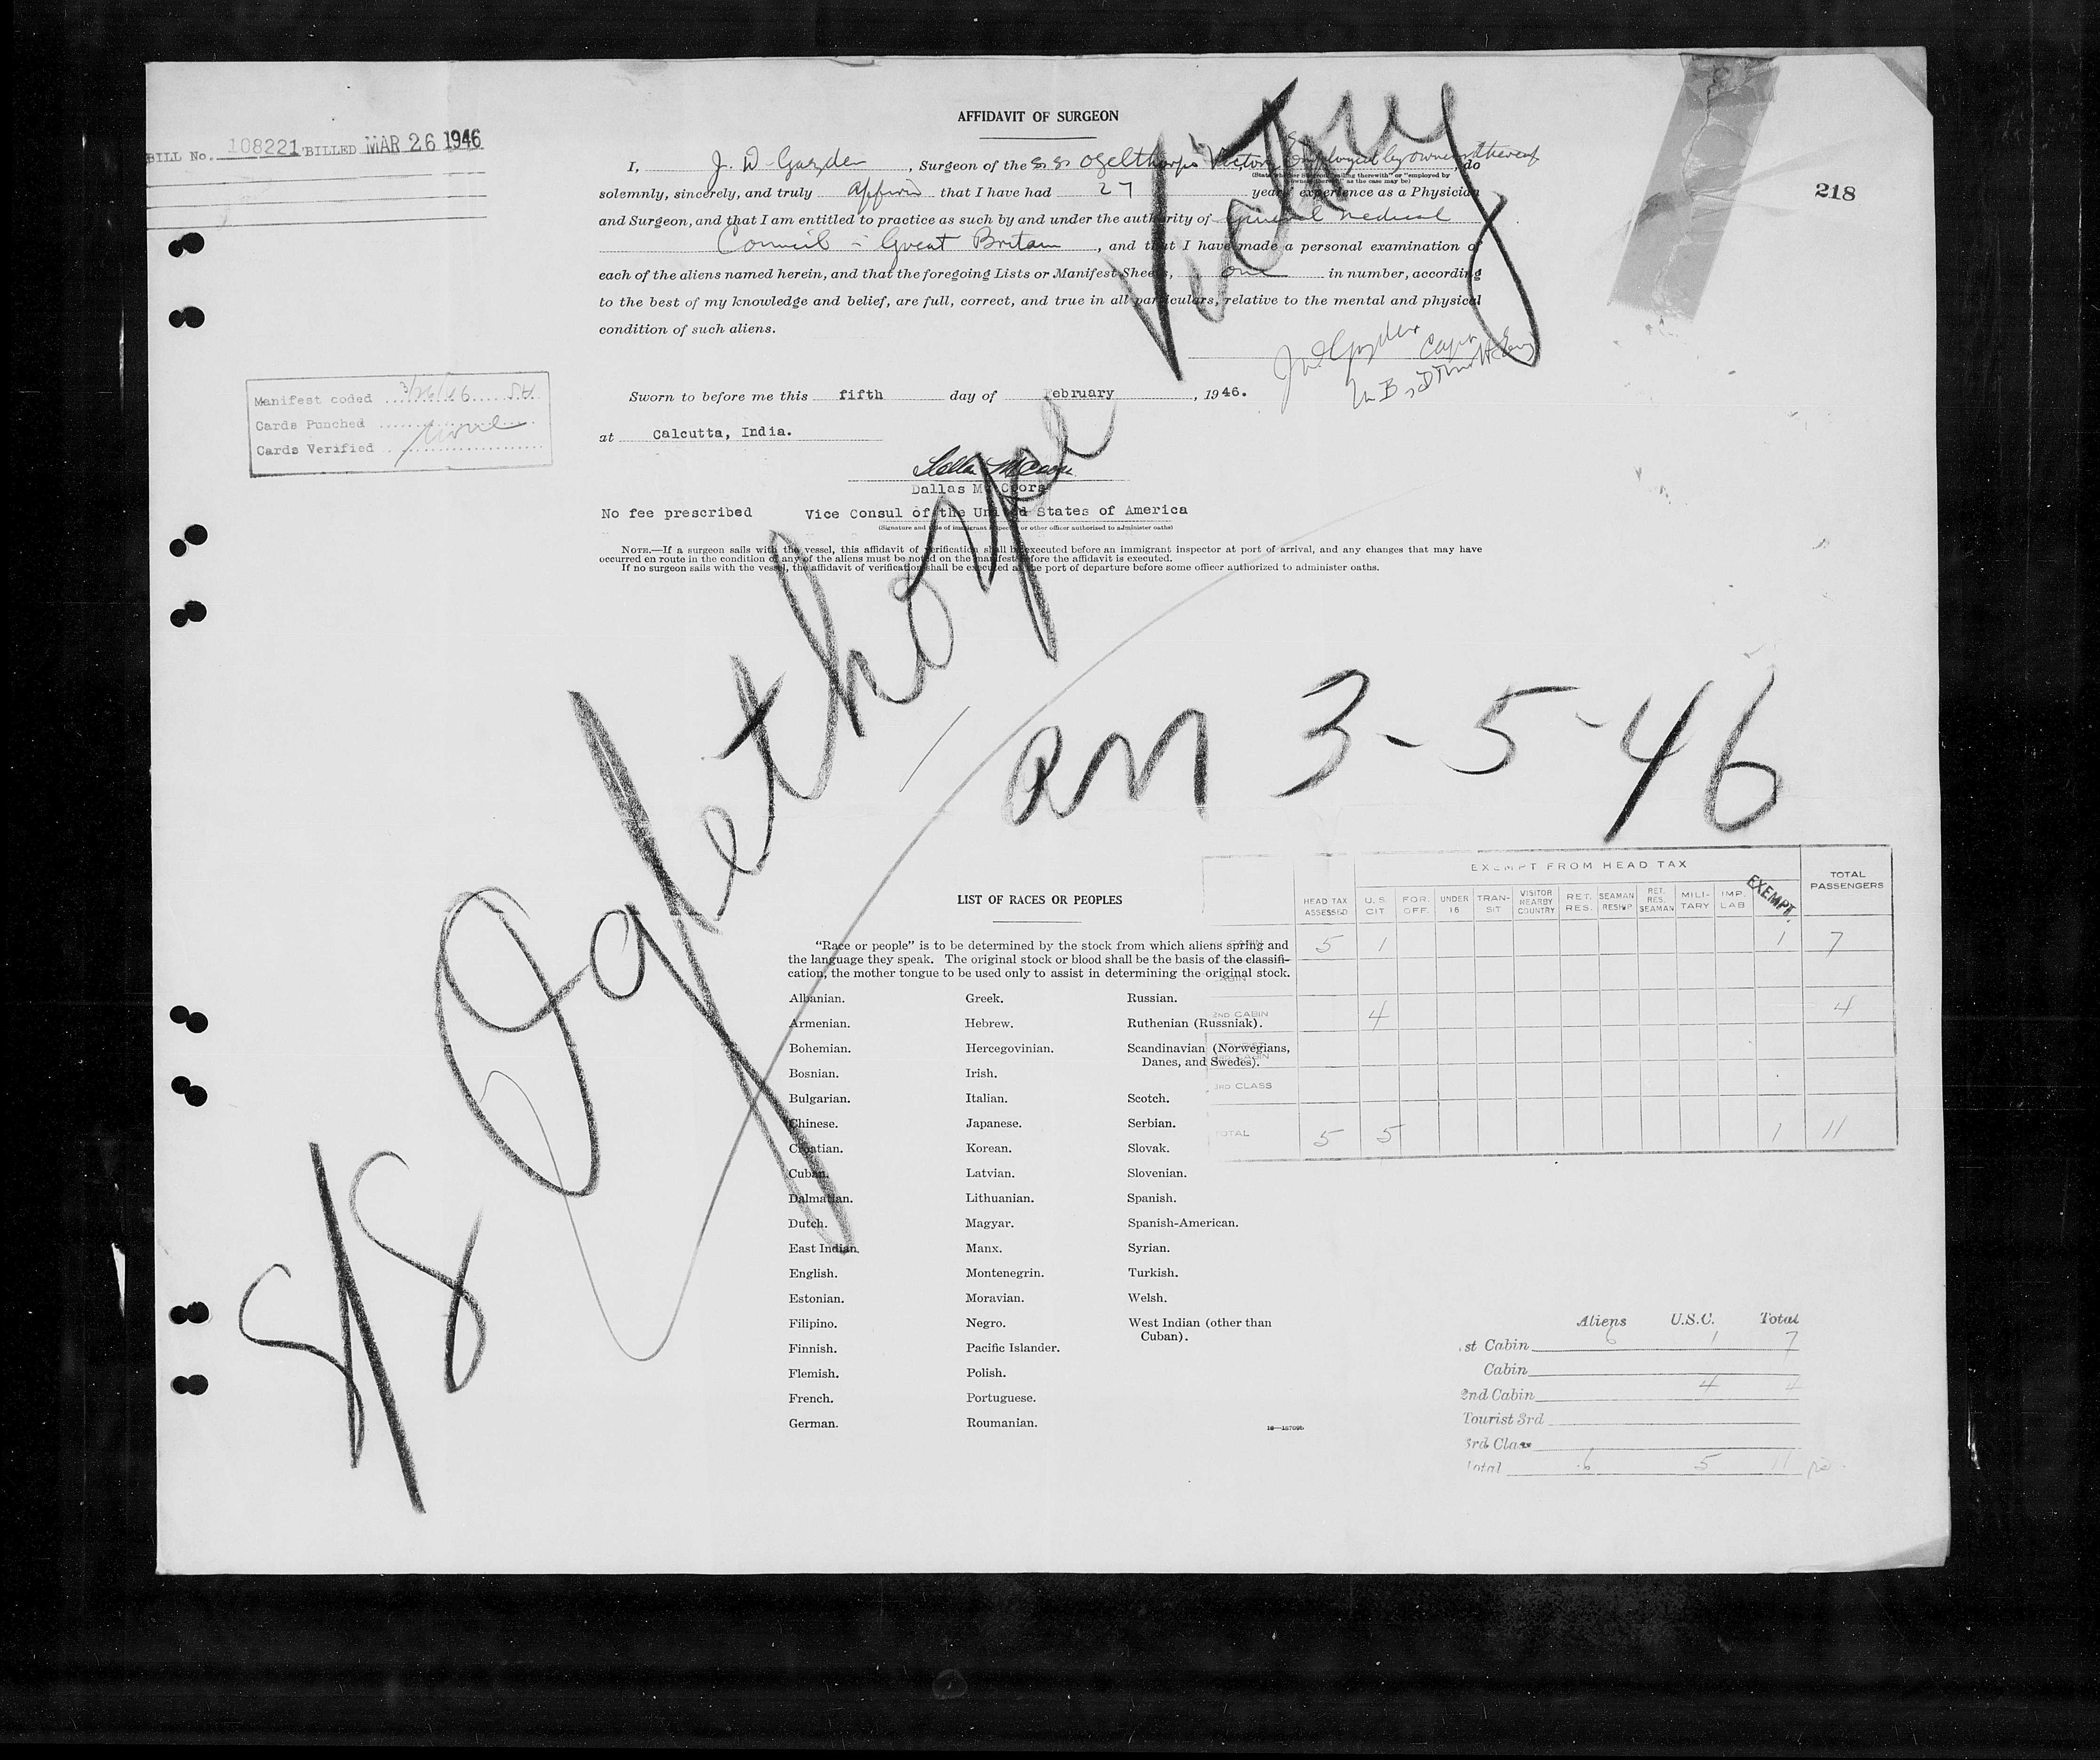 BILL No. 108221 BILLED MAR 26 1946
218
AFFIDAVIT OF SURGEON
I, J. D. Gazder, Surgeon of the S. S. Ogelthorpe Victory employed by owners thereof, do
(State whether Surgeon "sailing therewith" or "employed by owners thereof" as the case may be)
solemnly, sincerely, and truly affirm that I have had 27 years' experience as a Physician
and Surgeon, and that I am entitled to practice as such by and under the authority of General Medical
Council - Great Britain, and that I have made a personal examination of
each of the aliens named herein, and that the foregoing Lists or Manifest Sheets, one in number, according
to the best of my knowledge and belief, are full, correct, and true in all particulars, relative to the mental and physical
condition of such aliens.
Manifest coded 3/26/46
Cards Punched
Cards Verified none
Sworn to before me this fifth day of February, 1946.
at Calcutta, India.
No fee prescribed Vice Consul of the United States of America
(Signature and title of immigrant inspector or other officer authorized to administer oaths)
NOTE.—If a surgeon sails with the vessel, this affidavit of verification shall be executed before an immigrant inspector at port of arrival, and any changes that may have
occurred en route in the condition of any of the aliens must be noted on the manifest before the affidavit is executed.
If no surgeon sails with the vessel, the affidavit of verification shall be executed at the port of departure before some officer authorized to administer oaths.
S/S Oglethorpe Victory
arr 3-5-46
LIST OF RACES OR PEOPLES
"Race or people" is to be determined by the stock from which aliens spring and
the language they speak. The original stock or blood shall be the basis of the classifi-
cation, the mother tongue to be used only to assist in determining the original stock.
Albanian.
Armenian.
Bohemian.
Bosnian.
Bulgarian.
Chinese.
Croatian.
Cuban.
Dalmatian.
Dutch.
East Indian.
English.
Estonian.
Filipino.
Finnish.
Flemish.
French.
German.
Greek.
Hebrew.
Hercegovinian.
Irish.
Italian.
Japanese.
Korean.
Latvian.
Lithuanian.
Magyar.
Manx.
Montenegrin.
Moravian.
Negro.
Pacific Islander.
Polish.
Portuguese.
Roumanian.
Russian.
Ruthenian (Russniak).
Scandinavian (Norwegians,
Danes, and Swedes).
Scotch.
Serbian.
Slovak.
Slovenian.
Spanish.
Spanish-American.
Syrian.
Turkish.
Welsh.
West Indian (other than
Cuban).
EXEMPT FROM HEAD TAX
HEAD TAX ASSESSED U. S. CIT FOR. OFF. UNDER 16 TRAN-SIT VISITOR NEARBY COUNTRY RET. RES. SEAMAN RESHIP RET. RES. SEAMAN MILI-TARY IMP. LAB EXEMPT. TOTAL PASSENGERS
CABIN 5 1 1 7
CABIN
2ND CABIN 4 4
3RD CLASS
TOTAL 5 5 1 11
Aliens U.S.C. Total
1st Cabin 6 1 7
Cabin
2nd Cabin 4 4
Tourist 3rd
3rd Class
Total 6 5 11